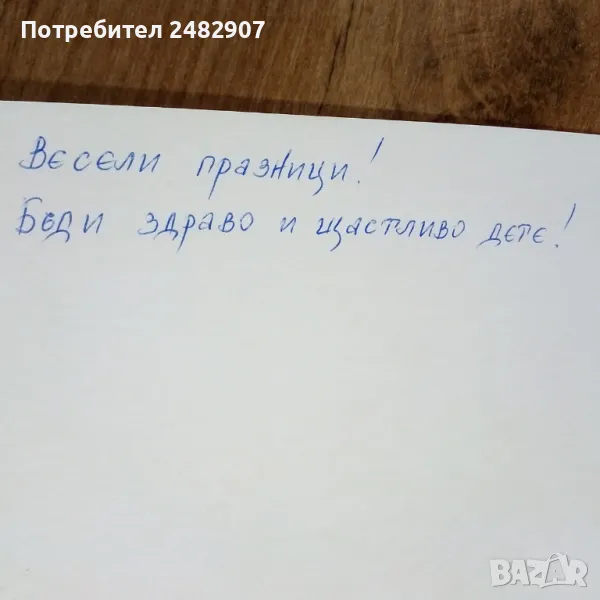 Потребител 2482907
Весели празници!
Бъди здраво и щастливо дете!
BAZAR